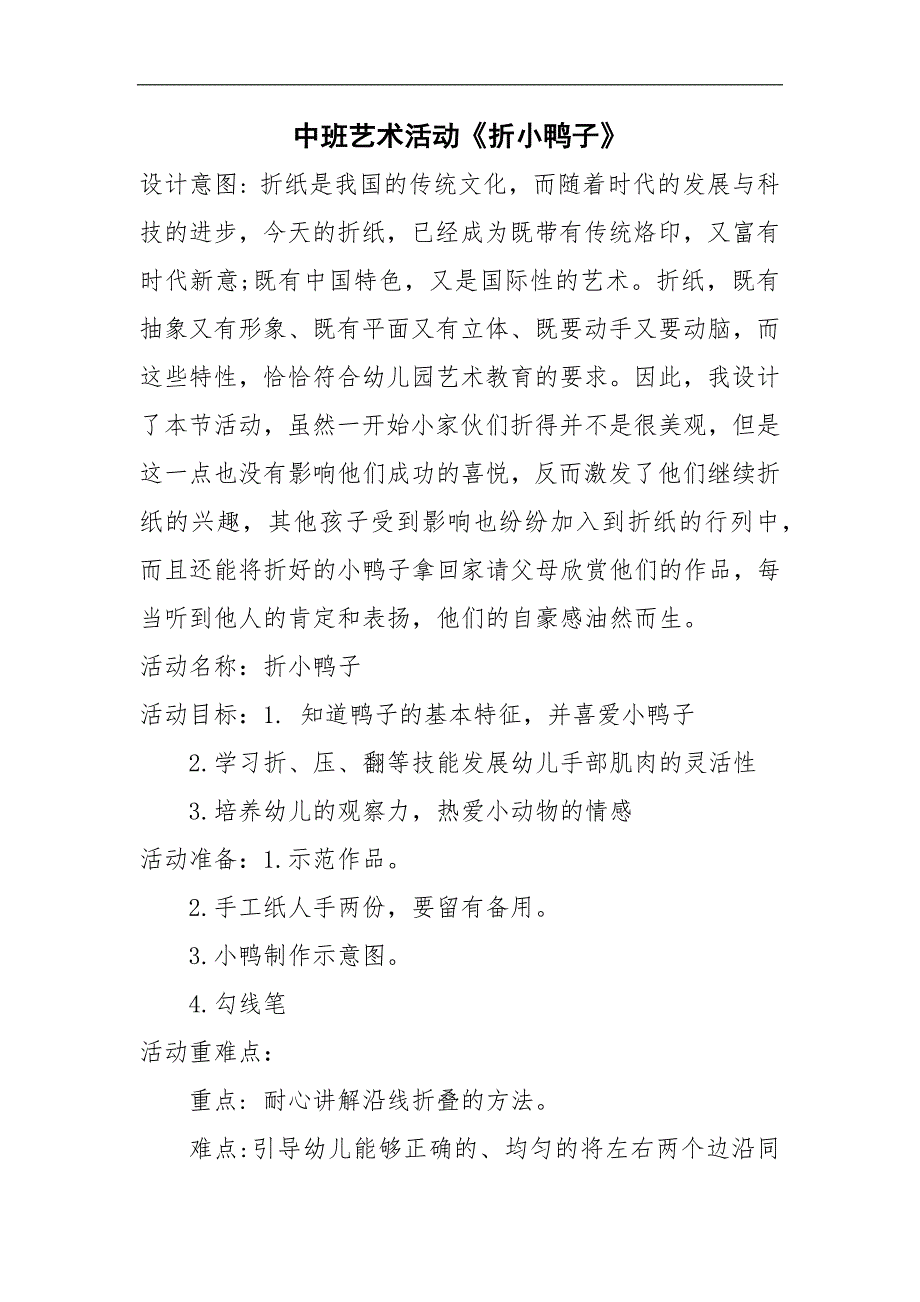 中班艺术活动《折小鸭子》
设计意图: 折纸是我国的传统文化，而随着时代的发展与科
技的进步，今天的折纸，已经成为既带有传统烙印，又富有
时代新意;既有中国特色，又是国际性的艺术。折纸，既有
抽象又有形象、既有平面又有立体、既要动手又要动脑，而
这些特性，恰恰符合幼儿园艺术教育的要求。因此，我设计
了本节活动，虽然一开始小家伙们折得并不是很美观，但是
这一点也没有影响他们成功的喜悦，反而激发了他们继续折
纸的兴趣，其他孩子受到影响也纷纷加入到折纸的行列中，
而且还能将折好的小鸭子拿回家请父母欣赏他们的作品，每
当听到他人的肯定和表扬，他们的自豪感油然而生。
活动名称：折小鸭子
活动目标：1. 知道鸭子的基本特征，并喜爱小鸭子
2.学习折、压、翻等技能发展幼儿手部肌肉的灵活性
3.培养幼儿的观察力，热爱小动物的情感
活动准备：1.示范作品。
2.手工纸人手两份，要留有备用。
3.小鸭制作示意图。
4.勾线笔
活动重难点：
重点: 耐心讲解沿线折叠的方法。
难点:引导幼儿能够正确的、均匀的将左右两个边沿同